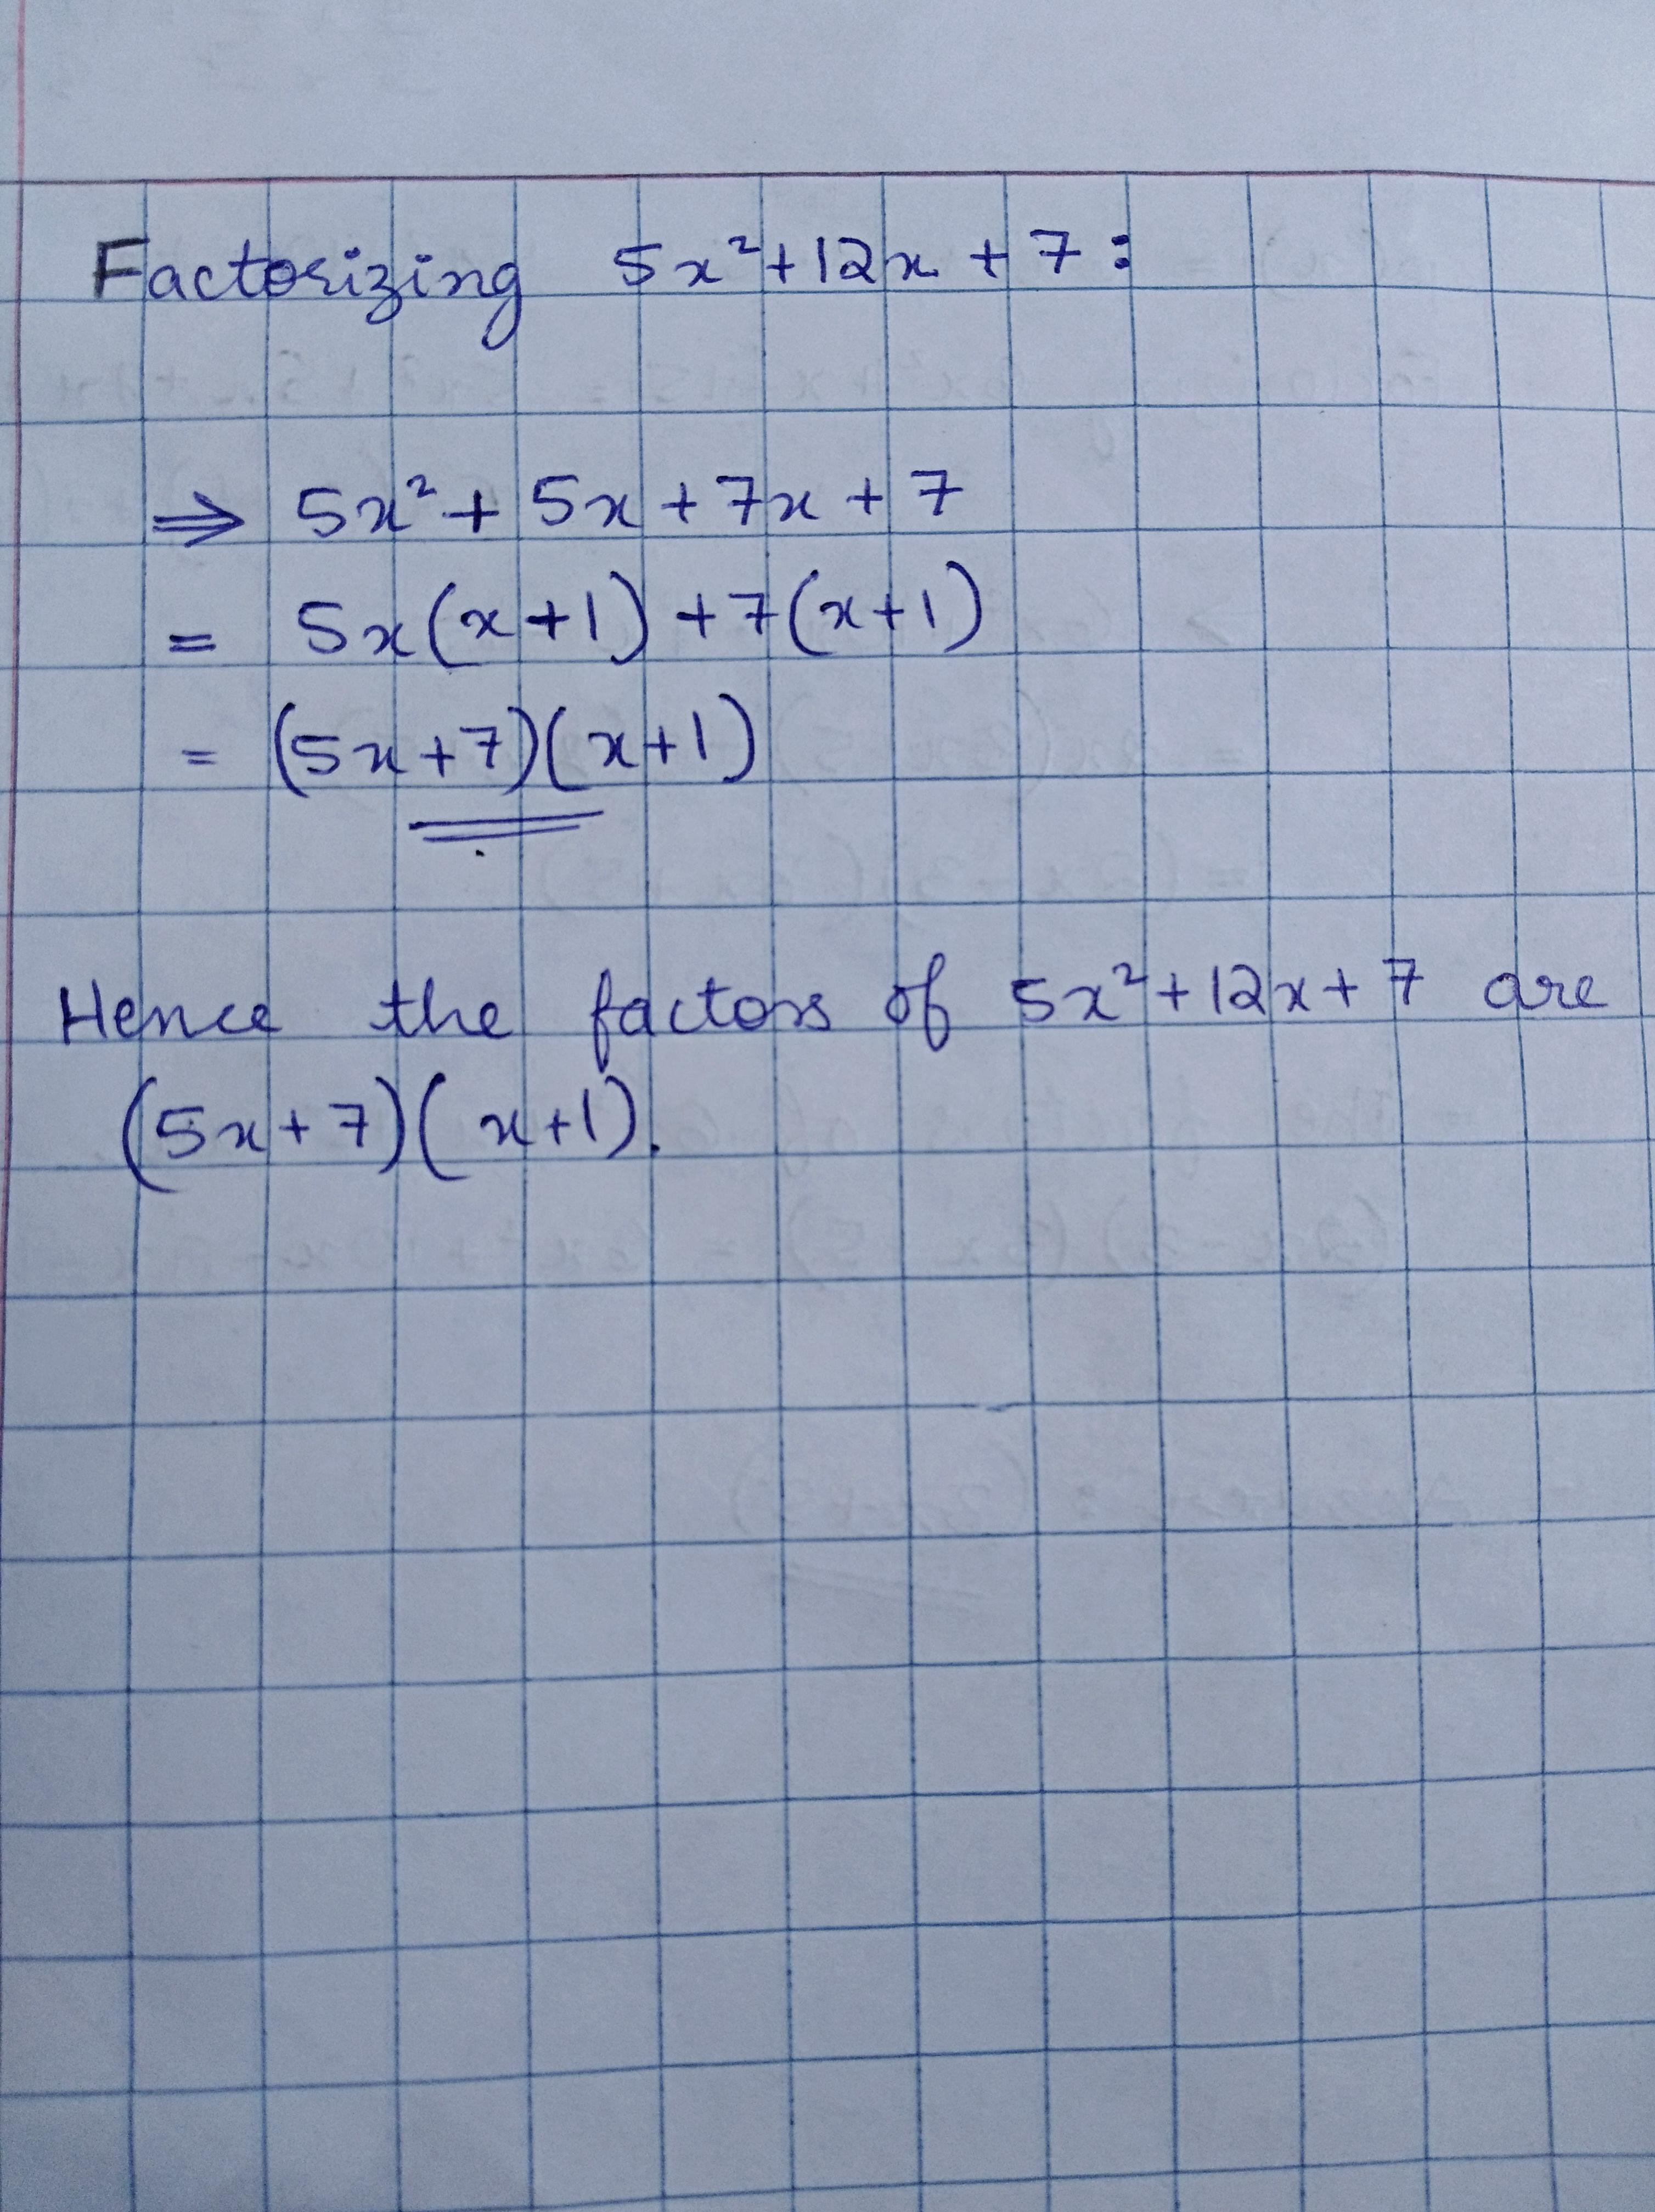 Factorizing 5x²+12x+7:
⇒ 5x²+5x+7x+7
= 5x(x+1)+7(x+1)
= (5x+7)(x+1)
Hence the factors of 5x²+12x+7 are
(5x+7)(x+1).